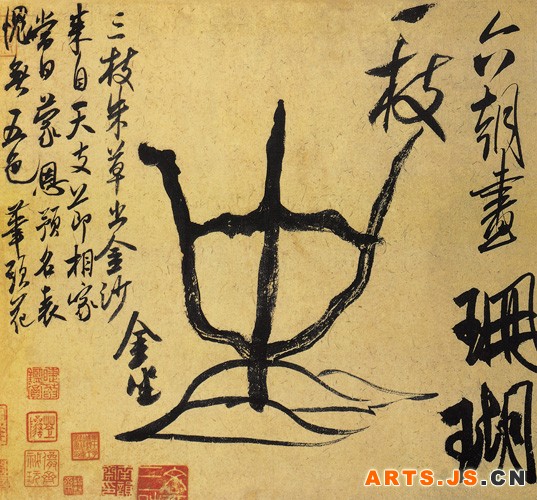 六朝畫珊瑚
一枝
金坐
三枝朱草出金沙
來自天支節相家
當日蒙恩預名表
愧無五色筆頭花
ARTS.JS.CN